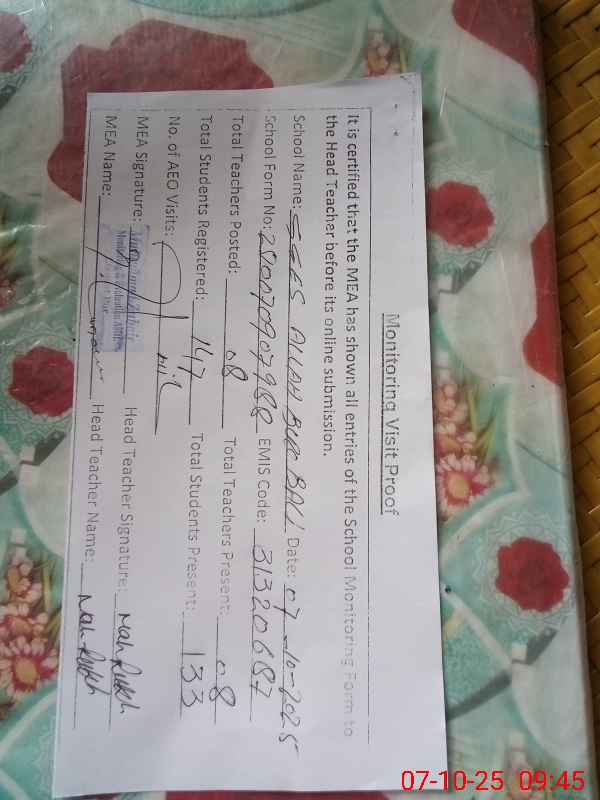 Monitoring Visit Proof
It is certified that the MEA has shown all entries of the School Monitoring Form to
the Head Teacher before its online submission.
School Name: GGES ALLAH BUX BALI Date: 07-10-2025
School Form No: EMIS Code: 31320687
Total Teachers Posted: 08 Total Teachers Present: 08
Total Students Registered: 147 Total Students Present: 133
No. of AEO Visits: nil
MEA Signature: Head Teacher Signature: Mah Rukh
MEA Name: Head Teacher Name: Mah Rukh
07-10-25 09:45